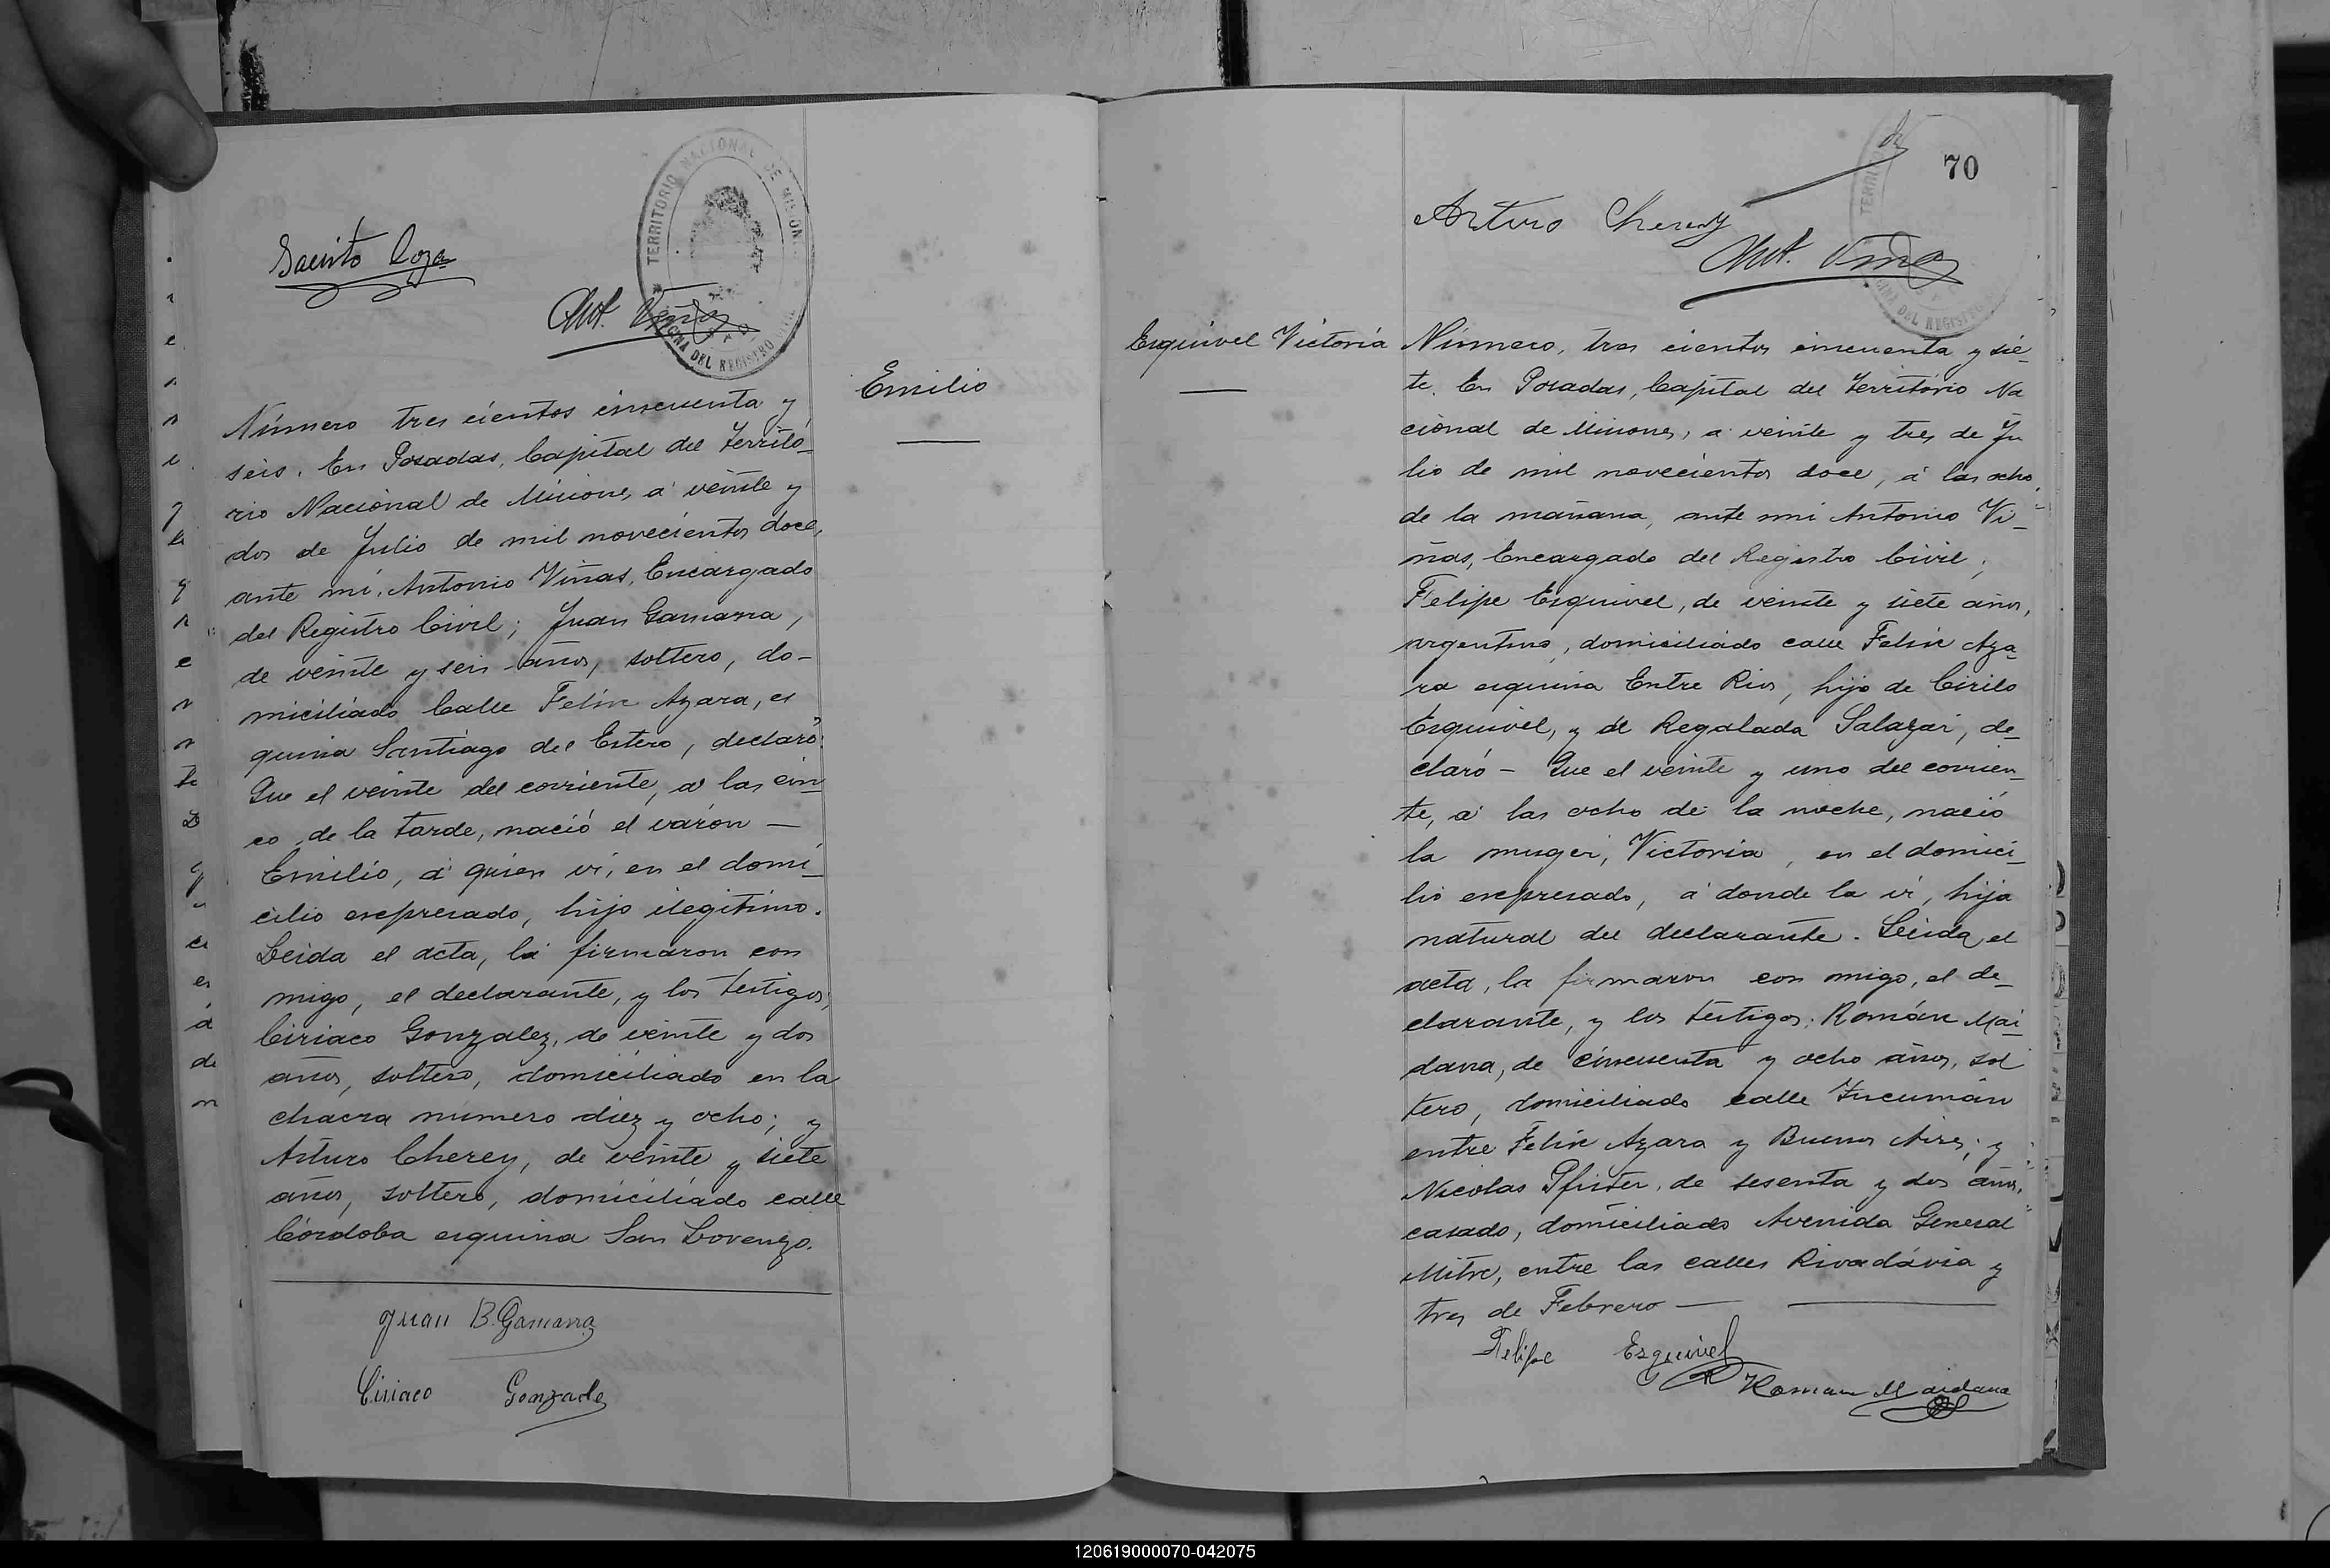 Jacinto Loza
Ant. Viñas
TERRITORIO NACIONAL DE MISIONES
OFICINA DEL REGISTRO CIVIL
Emilio
Número tres cientos cincuenta y
seis. En Posadas, Capital del Territo_
rio Nacional de Misiones, á veinte y
dos de Julio de mil novecientos doce,
ante mí, Antonio Viñas, Encargado
del Registro Civil; Juan Gamarra,
de veinte y seis años, soltero, do-
miciliado Calle Felix Azara, es
quina Santiago del Estero, declaró:
Que el veinte del corriente, á las cin_
co de la tarde, nació el varón —
Emilio, á quien ví, en el domi_
cilio expresado, hijo ilegitimo.
Leida el acta, la firmaron con
migo, el declarante, y los testigos,
Ciriaco Gonzalez, de veinte y dos
años, soltero, domiciliado en la
chacra número diez y ocho; y
Arturo Cherey, de veinte y siete
años, soltero, domiciliado calle
Córdoba esquina San Lorenzo.
Juan B. Gamarra
Ciriaco Gonzale
70
Arturo Cherey
Ant. Viñas
Esquivel Victoria
Número, tres cientos cincuenta y sie_
te. En Posadas, Capital del Território Na
cional de Misiones, á veinte y tres de Ju
lio de mil novecientos doce, á las ocho,
de la mañana, ante mi Antonio Vi_
ñas, Encargado del Registro Civil;
Felipe Esquivel, de veinte y siete años,
argentino, domiciliado calle Felix Aza_
ra esquina Entre Rios, hijo de Cirilo
Esquivel, y de Regalada Salazar, de_
claró - Que el veinte y uno del corrien_
te, á las ocho de la noche, nació
la muger, Victoria, en el domici_
lio expresado, á donde la ví, hija
natural del declarante. Leida, el
acta, la firmaron con migo, el de_
clarante, y los testigos: Román Mai_
dana, de cincuenta y ocho años, sol
tero, domiciliado calle Tucumán
entre Felix Azara y Buenos Aires; y
Nicolas Pfister, de sesenta y dos años,
casado, domiciliado Avenida General
Mitre, entre las calles Rivadávia y
tres de Febrero —
Felipe Esquivel
Roman Maidana
120619000070-042075